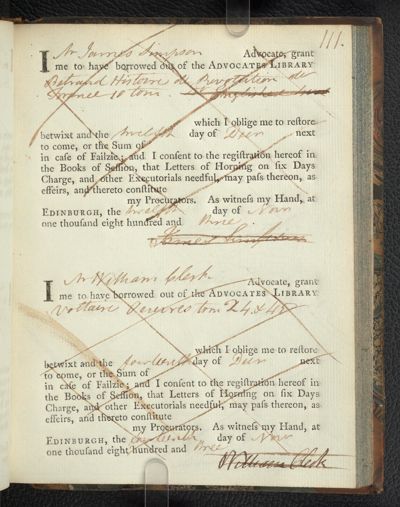 111.
I Mr James Simpson Advocate, grant
me to have borrowed out of the ADVOCATES LIBRARY
Bertrand Histoire de Revolution de
France 10 tom.
which I oblige me to reſtore
betwixt and the twelfth day of Decr next
to come, or the Sum of
in caſe of Failzie; and I conſent to the regiſtration hereof in
the Books of Seſſion, that Letters of Horning on ſix Days
Charge, and other Executorials needful, may paſs thereon, as
effeirs, and thereto conſtitute
my Procurators. As witneſs my Hand, at
EDINBURGH, the twelfth day of Novr
one thouſand eight hundred and three
James Simpson
I Mr William Clerk Advocate, grant
me to have borrowed out of the ADVOCATES LIBRARY
Voltaire Oeuvres tom 24 & 40
which I oblige me to reſtore
betwixt and the fourteenth day of Decr next
to come, or the Sum of
in caſe of Failzie; and I conſent to the regiſtration hereof in
the Books of Seſſion, that Letters of Horning on ſix Days
Charge, and other Executorials needful, may paſs thereon, as
effeirs, and thereto conſtitute
my Procurators. As witneſs my Hand, at
EDINBURGH, the fourteenth day of Novr
one thouſand eight hundred and three
William Clerk